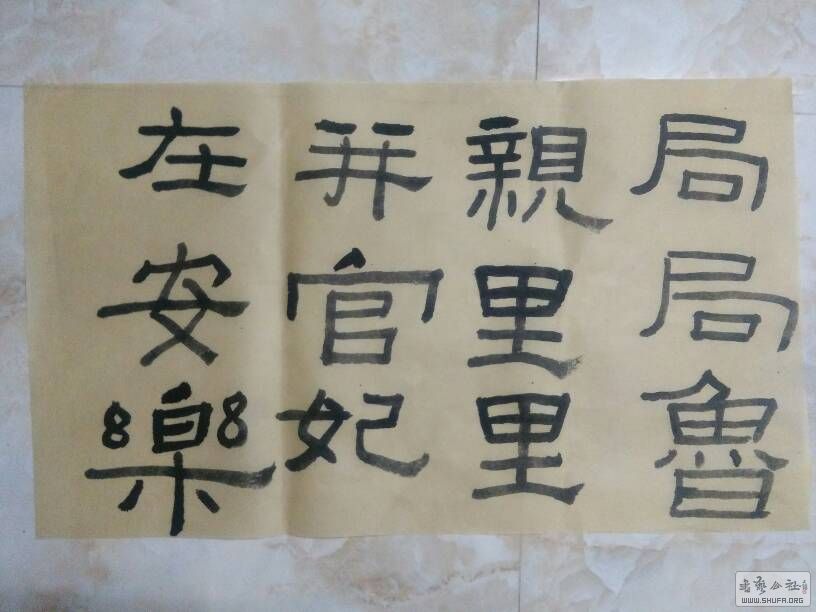 局局魯
親里里
并官妃
在安樂
書藝公社
WWW.SHUFA.ORG